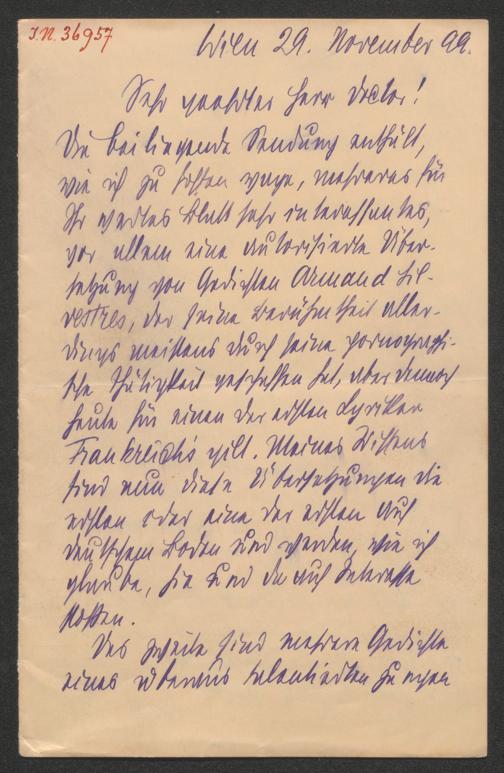 I.N. 36957
Wien 29. November 99.
Sehr geehrter Herr Doctor!
Die beiliegende Sendung enthält,
wie ich zu hoffen wage, mehreres für
Ihr wertes Blatt sehr interessantes,
vor allem eine autorisierte Über-
setzung von Gedichten Armand Sil-
vestres, der seine Berühmtheit aller-
dings meistens durch seine pornographi-
sche Thätigkeit geschaffen hat, aber dennoch
heute für einen der ersten Lyriker
Frankreichs gilt. Meines Wissens
sind nun diese Übersetzungen die
ersten oder eine der ersten auf
deutschem Boden und werden, wie ich
glaube, hie und da auf Interesse
stoßen.
Das zweite sind mehrere Gedichte
eines überaus talentierten jungen